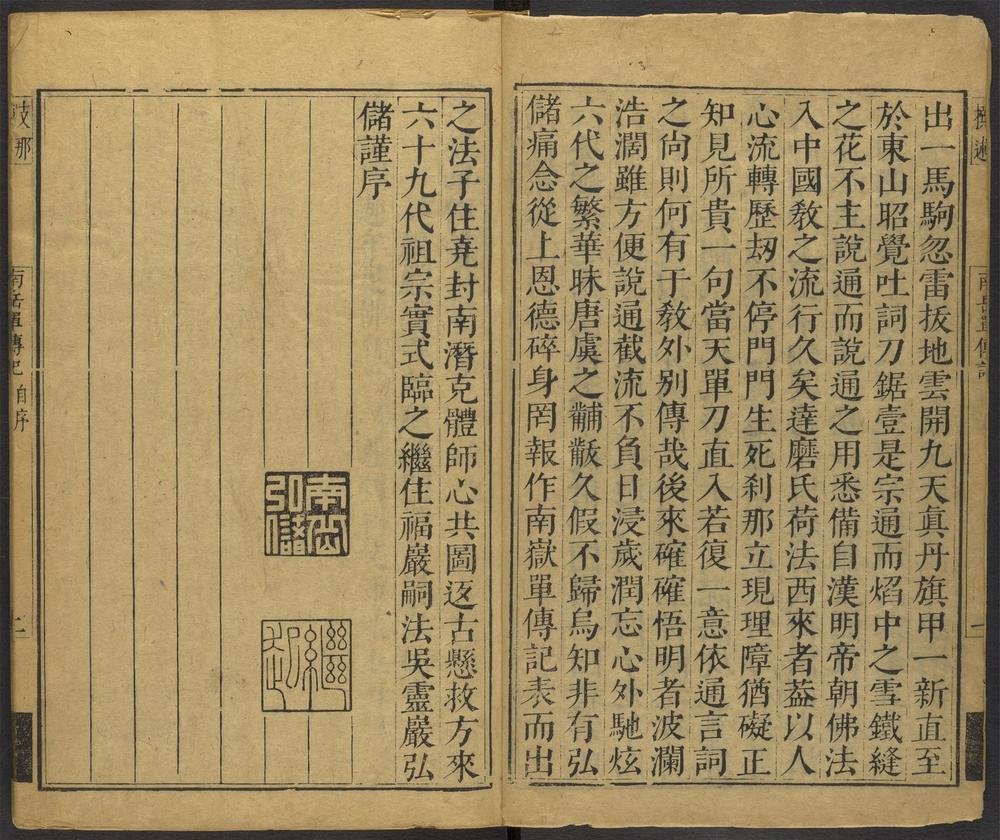 出一馬駒忽雷扳地雲開九天眞丹旗甲一新直至
於東山昭覺吐詞刀鋸壹是宗通而焰中之雪鐵縫
之花不主說通而說通之用悉備自漢明帝朝佛法
入中國敎之流行久矣達磨氏荷法西來者葢以人
心流轉歷刼不停門門生死刹那立現理障猶礙正
知見所貴一句當天單刀直入若復一意依通言詞
之尙則何有于敎外別傳哉後來確確悟明者波瀾
浩濶雖方便說通截流不負日浸歲潤忘心外馳炫
六代之繁華昧唐虞之黼黻久假不歸烏知非有弘
儲痛念從上恩德碎身罔報作南嶽單傳記表而出
之法子住堯封南潛克體師心共圖返古懸救方來
六十九代祖宗實式臨之繼住福嚴嗣法吳靈巖弘
儲謹序
南岳弘儲
繼起
南岳單傳記 自序
二
南岳單傳記
一